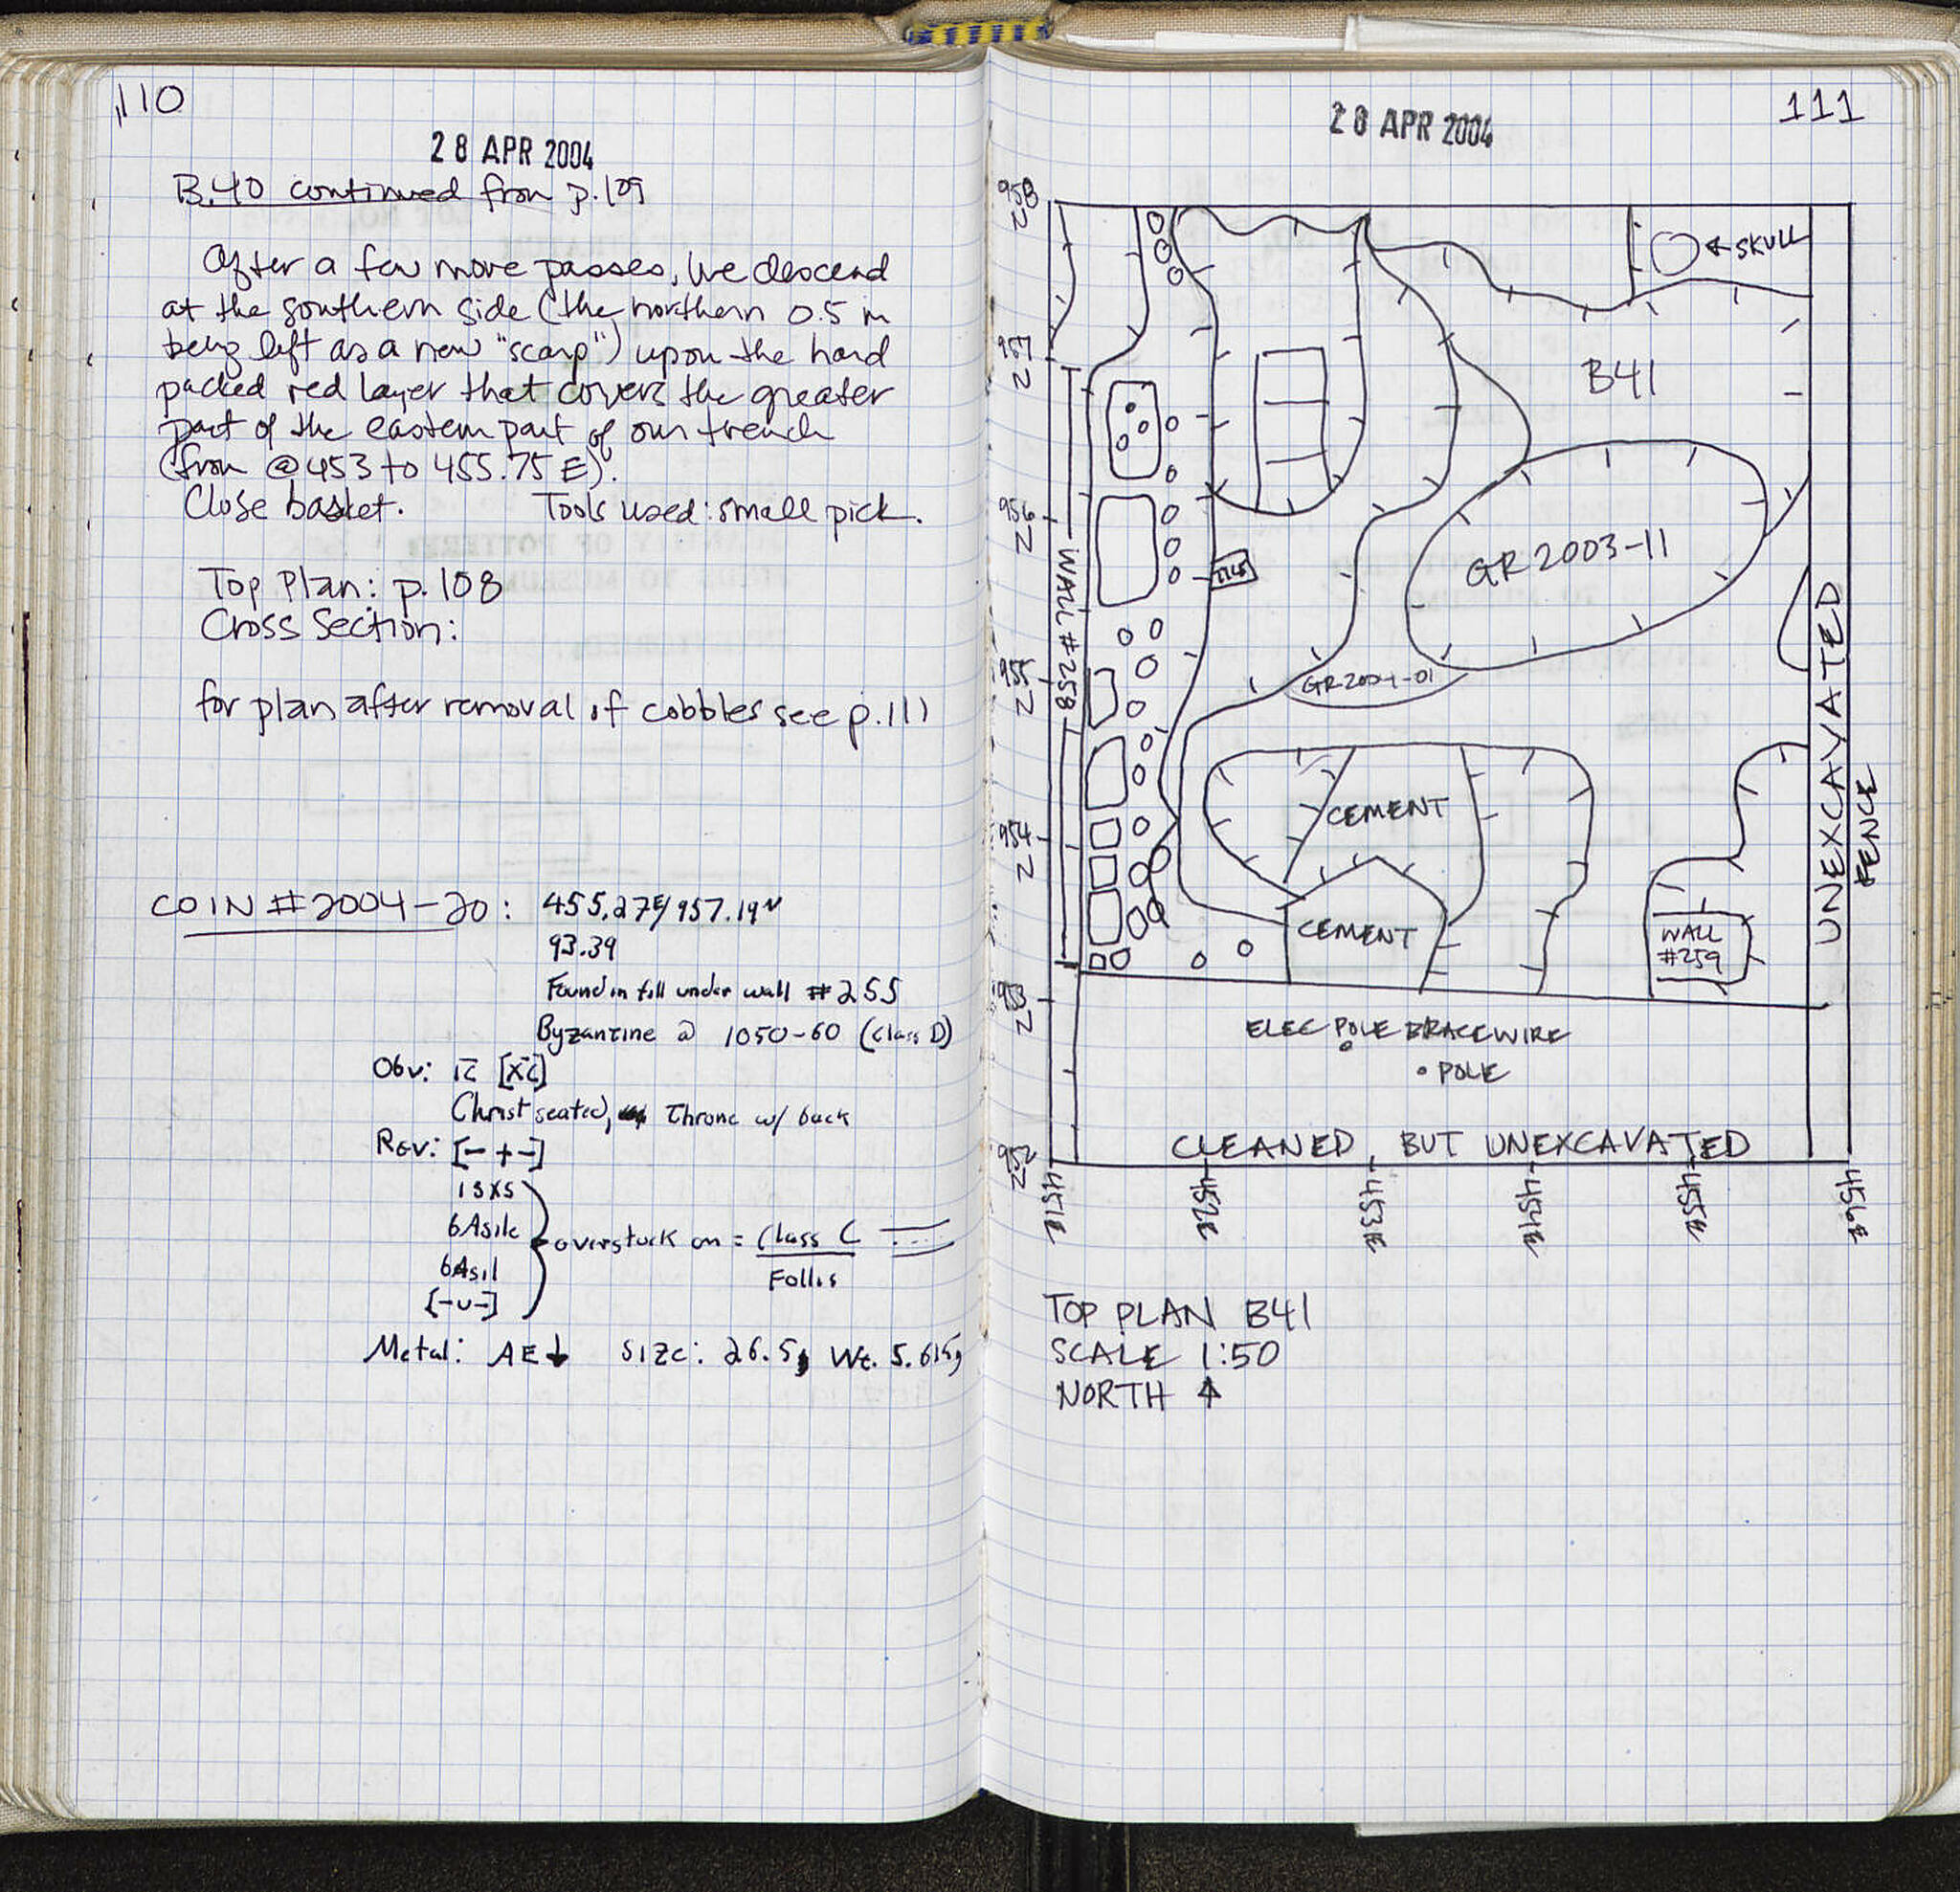 110
28 APR 2004
B.40 continued from p.109
After a few more passes, we descend
at the southern side (the northern 0.5 m
being left as a new "scarp") upon the hard
packed red layer that covers the greater
part of the eastern part of our trench
(from @ 453 to 455.75 E).
Close basket. Tools used: small pick.
Top Plan: p. 108
Cross Section:
for plan after removal of cobbles see p. 111
COIN #2004-20: 455.27E/957.19N
93.39
Found in fill under wall #255
Byzantine @ 1050-60 (Class D)
Obv: IC [XC]
Christ seated, Throne w/ back
Rev: [- + -]
ISXS
6Asilc
6Asil
[-U-]
overstuck on = Class C
Follis
Metal: AE↓ Size: 26.5, Wt. 5.615g
111
28 APR 2004
958 N
SKULL
957 N
B41
956 N
TILE
GR 2003-11
WALL #258
UNEXCAVATED
FENCE
955 N
GR2004-01
954 N
CEMENT
CEMENT
WALL
#259
953 N
ELEC POLE BRACEWIRE
POLE
952 N
CLEANED, BUT UNEXCAVATED
451E
452E
453E
454E
455E
456E
TOP PLAN B41
SCALE 1:50
NORTH ↑